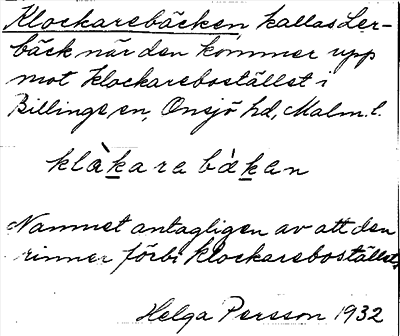 Klockarebäcken kallas Ler-
bäck när den kommer upp
mot klockarebostället i
Billinge, sn, Onsjö hd, Malm. l.
klàkara bàkan
Namnet antagligen av att den
rinner förbi klockarebostället.
Helga Persson 1932